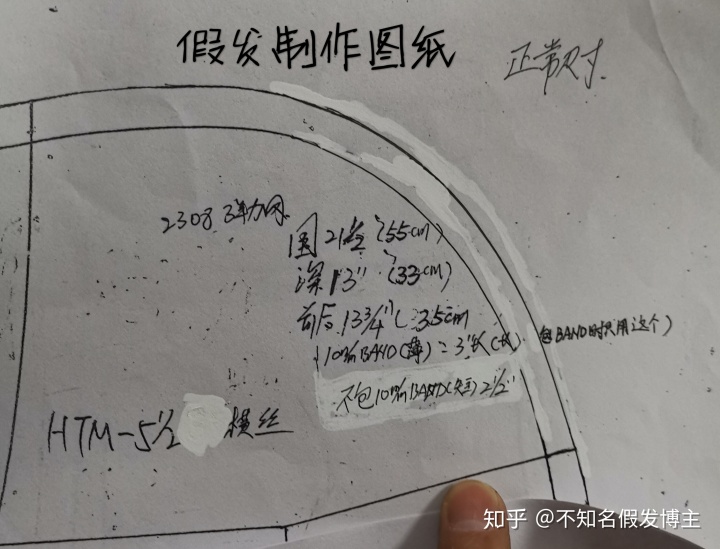 假发制作图纸
正常尺寸
2308 弹力网
围 21½" (55cm)
深 13" (33cm)
前后 13¾" 35cm
10m/m BAND(薄) = 3"长 (
包BAND时只用这个)
不包10m/m BAND(短) 2½"
HTM-5½ 横丝
知乎 @不知名假发博主